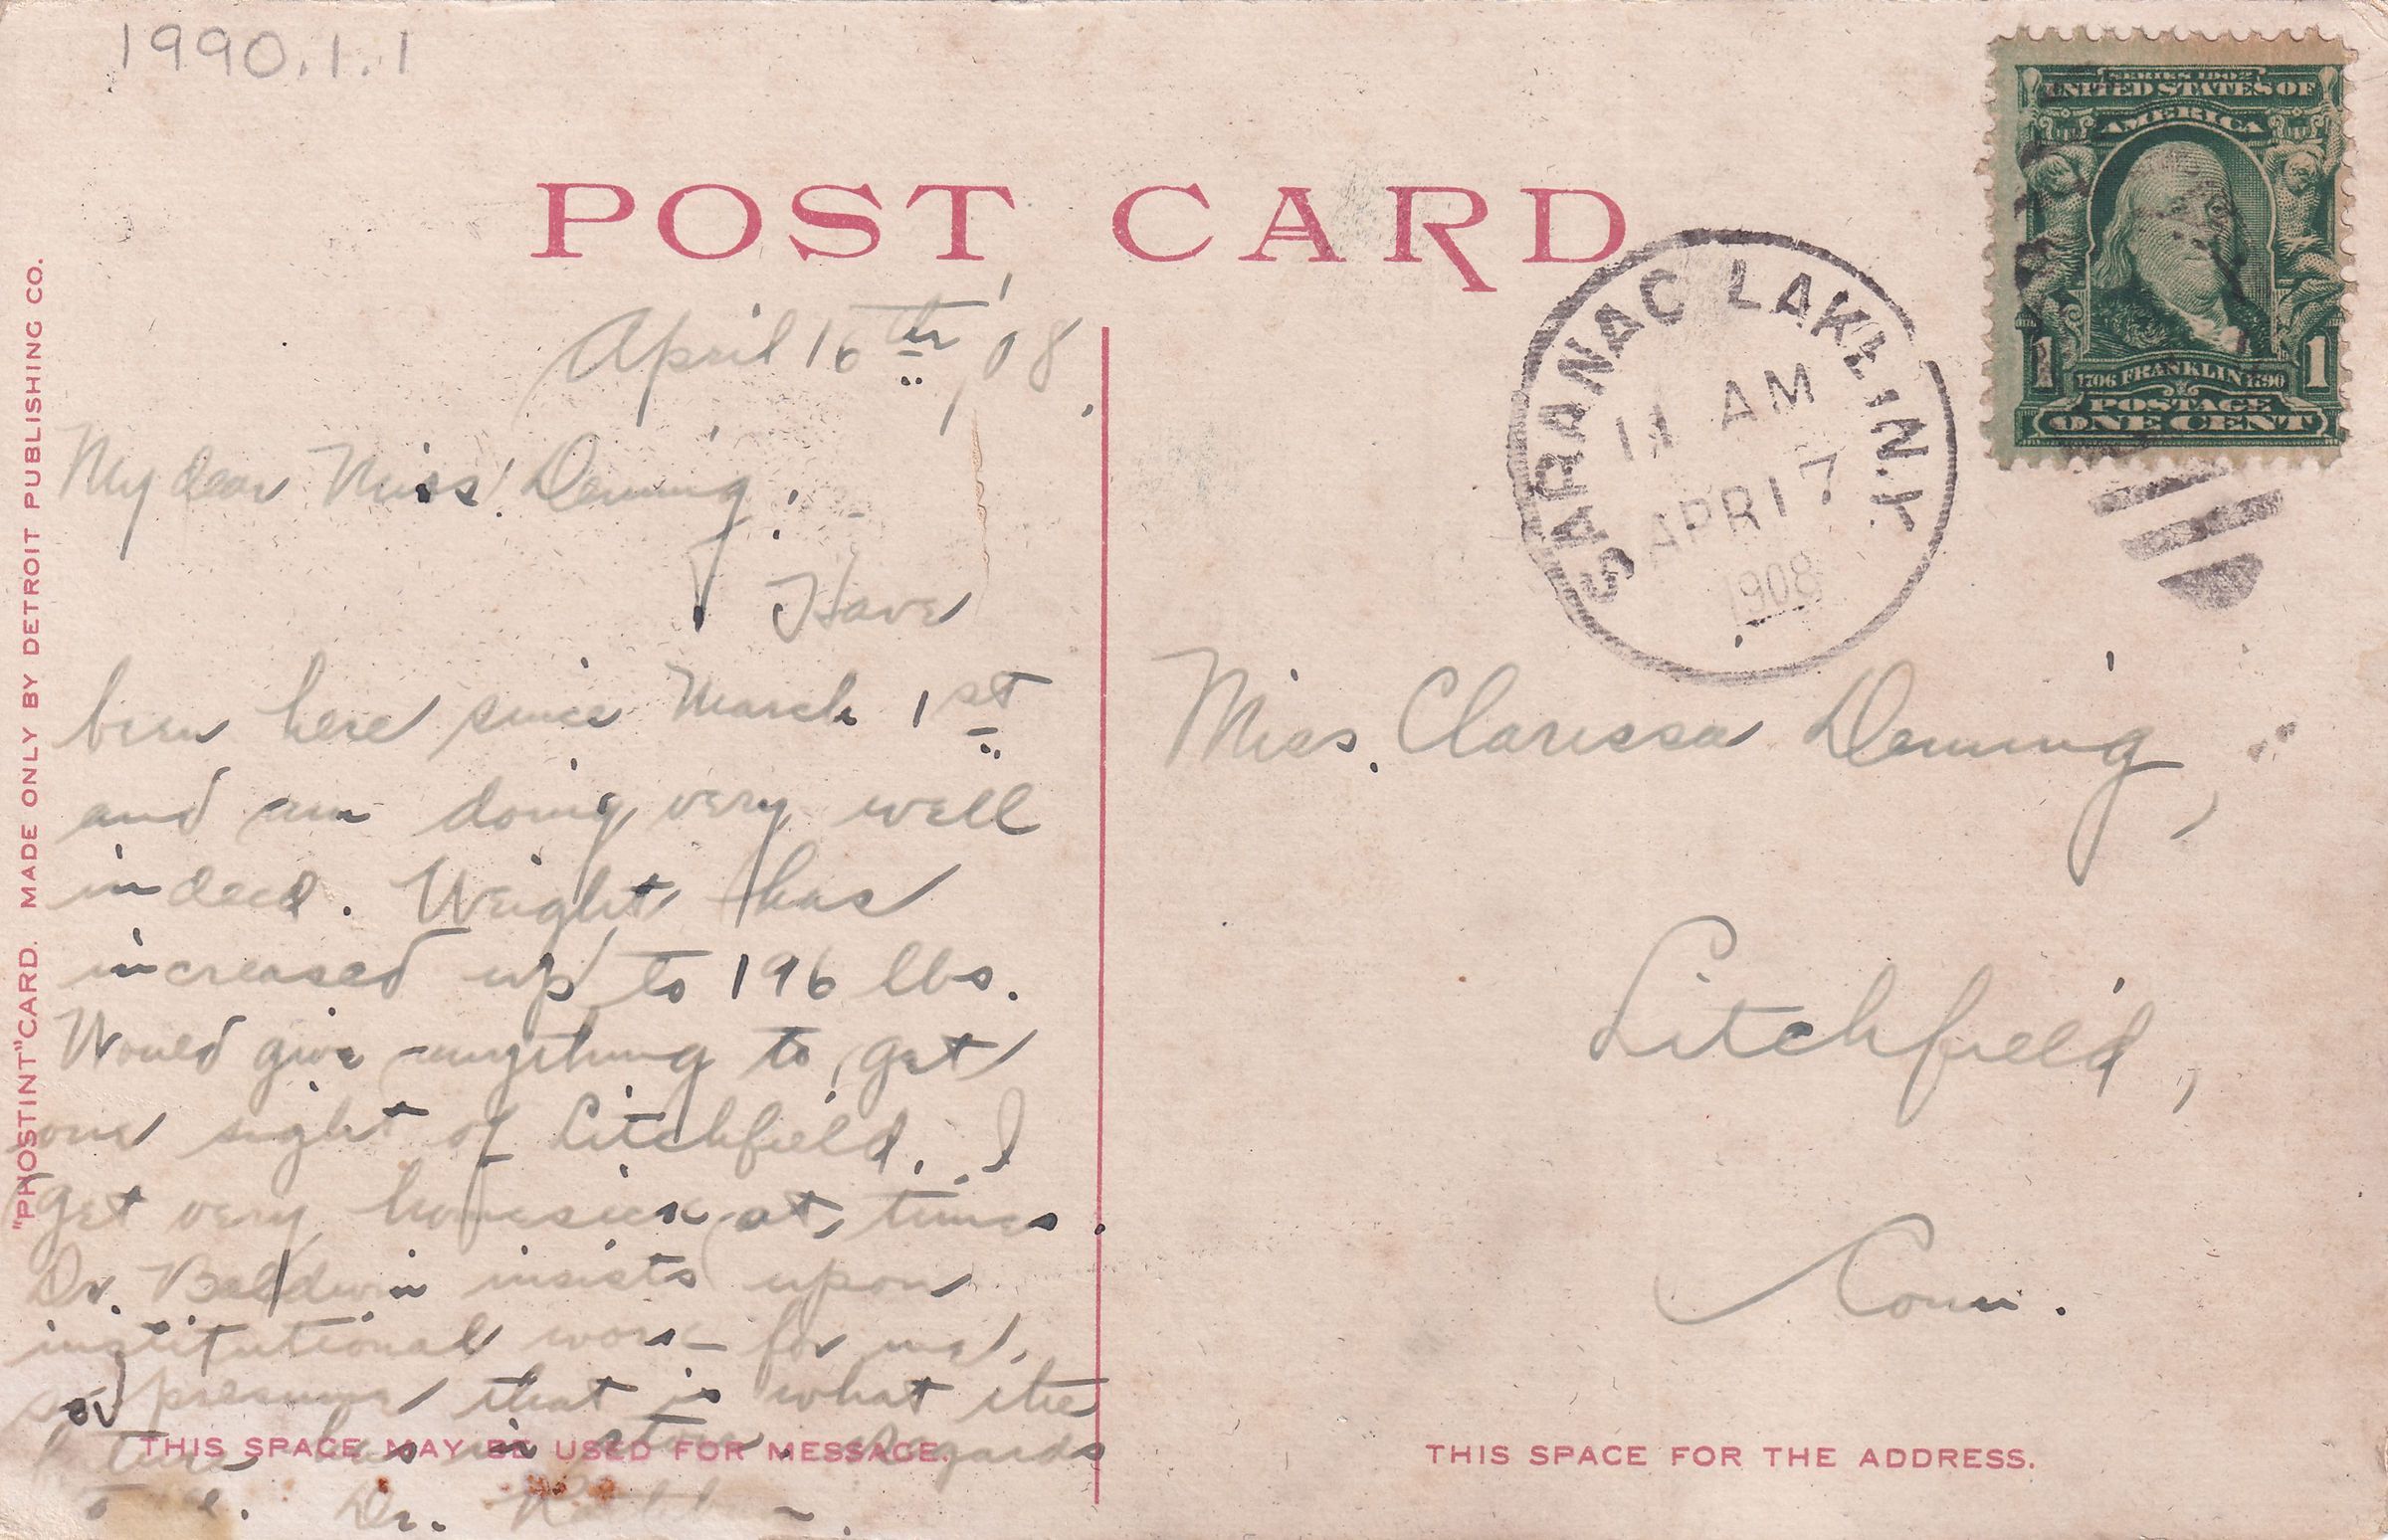 1990.1.1
SERIES 1902
UNITED STATES OF
AMERICA
1 1706 FRANKLIN 1790 1
POSTAGE
ONE CENT
POST CARD
SARANAC LAKE, N.Y.
11 AM
APR 17
1908
"PHOSTINT" CARD. MADE ONLY BY DETROIT PUBLISHING CO.
April 16th '08.
My dear Miss Deming:-
Have
been here since March 1st
and am doing very well
indeed. Weight has
increased up to 196 lbs.
Would give anything to get
one sight of Litchfield. I
get very homesick at times.
Dr. Baldwin insists upon
institutional work for me,
so I presume that is what the
future has in store. Regards
to all. Dr.
THIS SPACE MAY BE USED FOR MESSAGE.
Miss. Clarissa Deming,
Litchfield,
Conn.
THIS SPACE FOR THE ADDRESS.